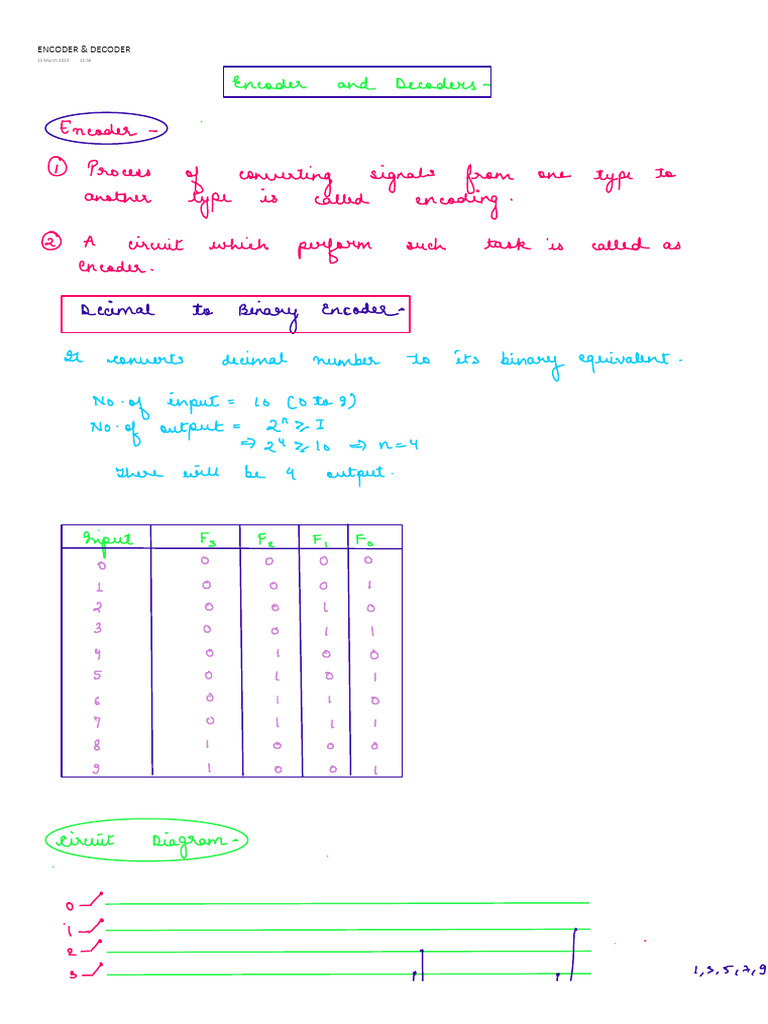 ENCODER & DECODER
15 March 2023 12:56
Encoder and Decoders-
Encoder -
① Process of converting signals from one type to
another type is called encoding.
② A circuit which perform such task is called as
encoder.
Decimal to Binary Encoder-
It converts decimal number to its binary equivalent.
No. of input = 10 (0 to 9)
No. of output = 2ⁿ ≥ I
⇒ 2⁴ ≥ 10 ⇒ n = 4
There will be 4 output.
Input F₃ F₂ F₁ F₀
0 0 0 0 0
1 0 0 0 1
2 0 0 1 0
3 0 0 1 1
4 0 1 0 0
5 0 1 0 1
6 0 1 1 0
7 0 1 1 1
8 1 0 0 0
9 1 0 0 1
Circuit Diagram-
0
1
2
3
1,3,5,7,9